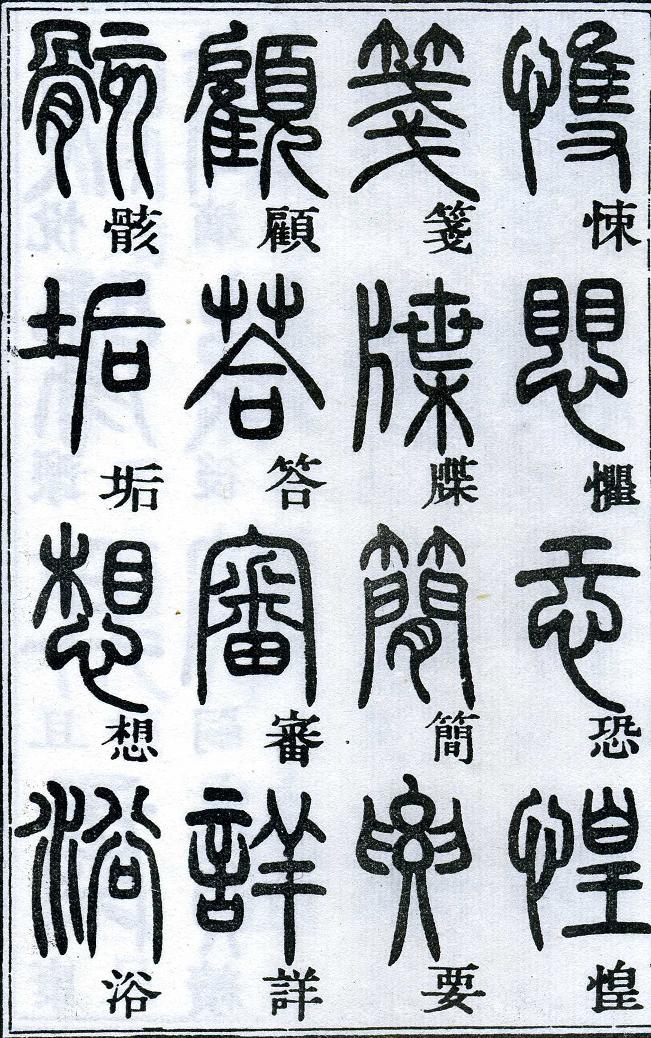 悚懼恐惶
箋牒簡要
顧答審詳
骸垢想浴